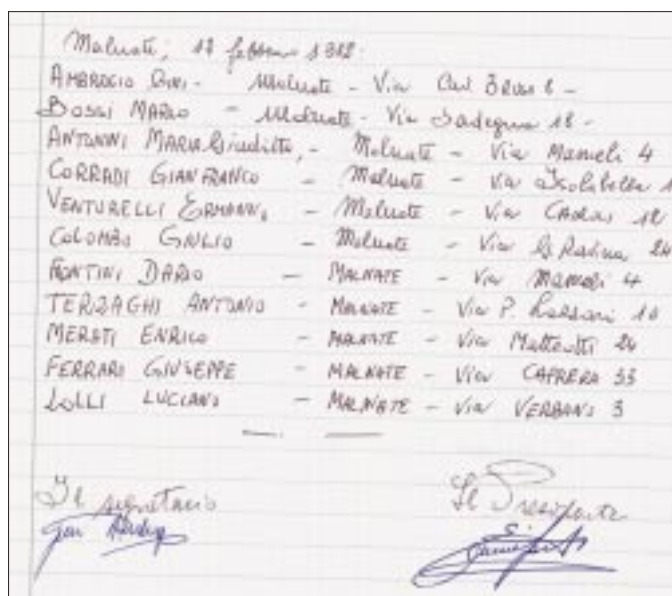 Malnate, 17 febbraio 1982.
AMBROGIO - Malnate - Via
BOSSI MARIO - Malnate - Via Sardegna 18 -
ANTONINI MARIA Giuditta, - Malnate - Via Mameli 4
CORRADI GIANFRANCO - Malnate - Via Isolabella
VENTURELLI ERMANNO - Malnate - Via 12
COLOMBO GIULIO - Malnate - Via 24
FONTINI DARIO - MALNATE - Via Mameli 4
TERZAGHI ANTONIO - MALNATE - Via P. 10
MERATI ENRICO - MALNATE - Via Matteotti 24
FERRARI GIUSEPPE - MALNATE - Via CAPRERA 33
LOLLI LUCIANO - MALNATE - Via VERBANO 3
Il segretario Il Presidente